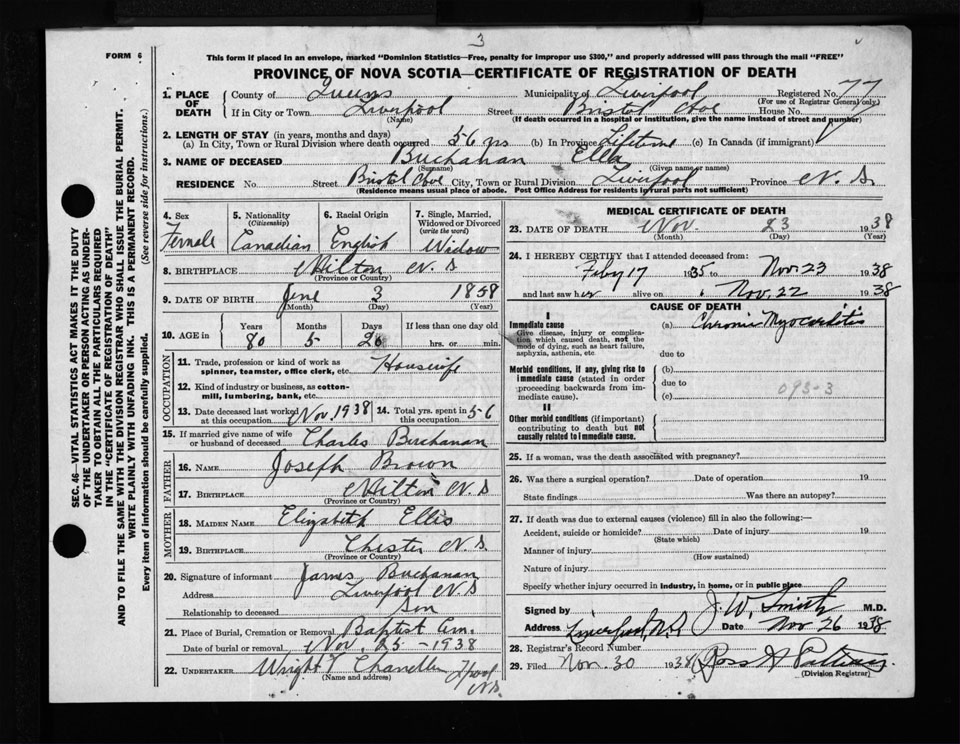 3
FORM 6
This form if placed in an envelope, marked "Dominion Statistics—Free, penalty for improper use $300," and properly addressed will pass through the mail "FREE"
PROVINCE OF NOVA SCOTIA—CERTIFICATE OF REGISTRATION OF DEATH
1. PLACE OF DEATH County of Queens Municipality of Liverpool Registered No. 77
(For use of Registrar General only)
If in City or Town Liverpool Street Bristol Ave House No.
(Name) (If death occurred in a hospital or institution, give the name instead of street and number)
2. LENGTH OF STAY (in years, months and days)
(a) In City, Town or Rural Division where death occurred 56 yrs (b) In Province Lifetime (c) In Canada (if immigrant)
3. NAME OF DECEASED Buchanan Ella
(Surname) (Given name or names)
RESIDENCE No. Street Bristol Ave City, Town or Rural Division Liverpool Province N. S
(Residence means usual place of abode. Post Office Address for residents in rural parts not sufficient)
4. Sex Female
5. Nationality (Citizenship) Canadian
6. Racial Origin English
7. Single, Married, Widowed or Divorced (write the word) Widow
8. BIRTHPLACE Milton N. S
(Province or Country)
9. DATE OF BIRTH June 3 1858
(Month) (Day) (Year)
10. AGE in Years 80 Months 5 Days 20 If less than one day old hrs. or min.
OCCUPATION
11. Trade, profession or kind of work as spinner, teamster, office clerk, etc. Housewife
12. Kind of industry or business, as cotton-mill, lumbering, bank, etc.
13. Date deceased last worked at this occupation Nov. 1938 14. Total yrs. spent in this occupation 56
15. If married give name of wife or husband of deceased Charles Buchanan
FATHER
16. NAME Joseph Brown
17. BIRTHPLACE Milton N. S
(Province or Country)
MOTHER
18. MAIDEN NAME Elizabeth Ellis
19. BIRTHPLACE Chester N. S.
(Province or Country)
20. Signature of informant James Buchanan
Address Liverpool N. S
Relationship to deceased Son
21. Place of Burial, Cremation or Removal Baptist Cem.
Date of burial or removal Nov. 25 - 1938
22. UNDERTAKER Wright V Chandler L'pool N.S.
(Name and address)
MEDICAL CERTIFICATE OF DEATH
23. DATE OF DEATH Nov. 23 1938
(Month) (Day) (Year)
24. I HEREBY CERTIFY that I attended deceased from:
Feby 17 1935 to Nov. 23 1938
and last saw her alive on Nov. 22 1938
CAUSE OF DEATH
I
Immediate cause
Give disease, injury or complication which caused death, not the mode of dying, such as heart failure, asphyxia, asthenia, etc
(a) Chronic Myocarditis
due to
Morbid conditions, if any, giving rise to immediate cause (stated in order proceeding backwards from immediate cause).
(b)
due to
(c) 093-3
II
Other morbid conditions (if important) contributing to death but not causally related to immediate cause.
25. If a woman, was the death associated with pregnancy?
26. Was there a surgical operation? Date of operation 19
State findings Was there an autopsy?
27. If death was due to external causes (violence) fill in also the following:—
Accident, suicide or homicide? Date of injury 19
(State which)
Manner of injury
(How sustained)
Nature of injury
Specify whether injury occurred in industry, in home, or in public place
Signed by J. W. Smith M.D.
Address Liverpool N.S. Date Nov 26 1938
28. Registrar's Record Number
29. Filed Nov. 30 1938
(Division Registrar)
SEC. 46—VITAL STATISTICS ACT MAKES IT THE DUTY
OF THE UNDERTAKER OR PERSON ACTING AS UNDER-
TAKER TO OBTAIN ALL THE PARTICULARS REQUIRED
IN THE "CERTIFICATE OF REGISTRATION OF DEATH"
AND TO FILE THE SAME WITH THE DIVISION REGISTRAR WHO SHALL ISSUE THE BURIAL PERMIT.
WRITE PLAINLY WITH UNFADING INK. THIS IS A PERMANENT RECORD.
Every item of information should be carefully supplied. (See reverse side for instructions.)